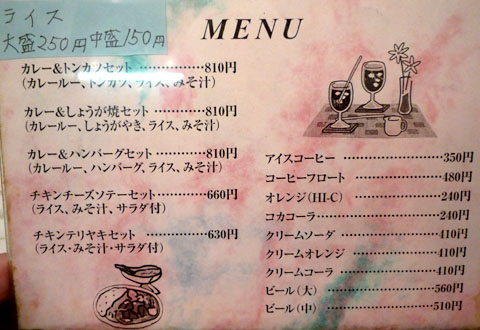 ライス
大盛250円 中盛150円
MENU
カレー&トンカツセット………………810円
(カレールー、トンカツ、ライス、みそ汁)
カレー&しょうが焼セット…………810円
(カレールー、しょうがやき、ライス、みそ汁)
カレー&ハンバーグセット…………810円
(カレールー、ハンバーグ、ライス、みそ汁)
チキンチーズソテーセット…………660円
(ライス、みそ汁、サラダ付)
チキンテリヤキセット………………630円
(ライス・みそ汁・サラダ付)
アイスコーヒー………………………350円
コーヒーフロート……………………480円
オレンジ(HI-C)………………………240円
コカコーラ……………………………240円
クリームソーダ………………………410円
クリームオレンジ……………………410円
クリームコーラ………………………410円
ビール(大)……………………………560円
ビール(中)……………………………510円